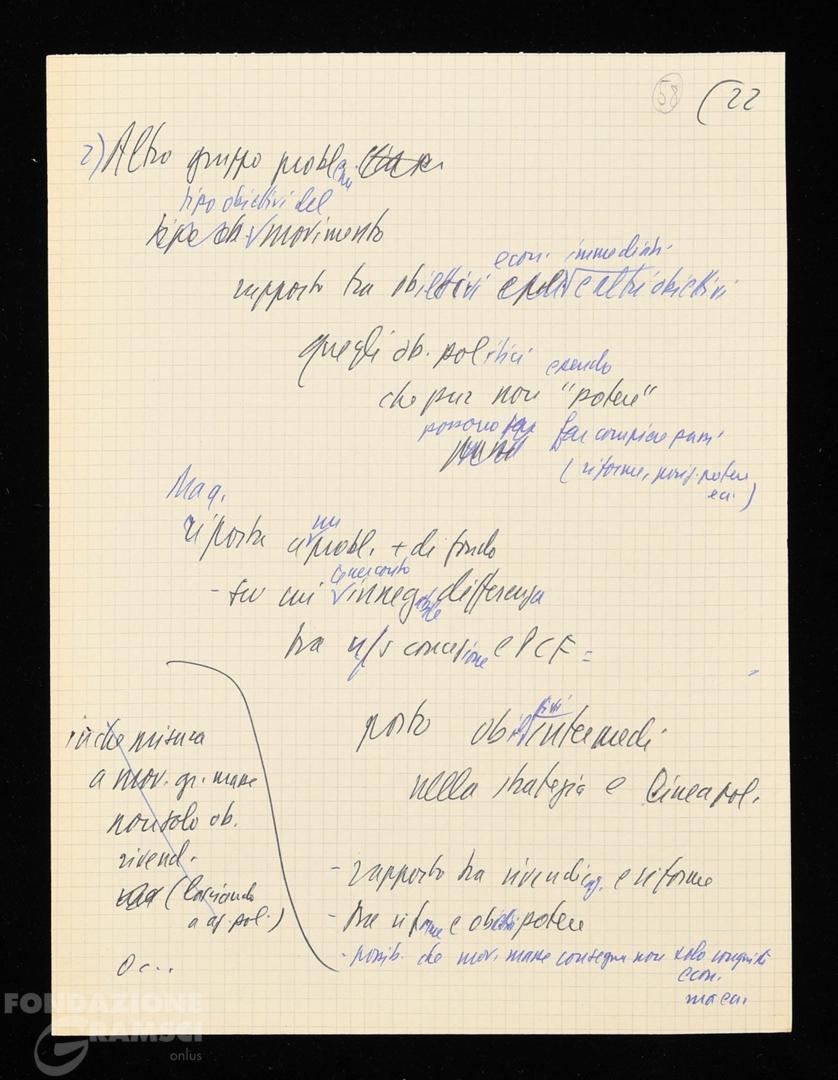 58 (22
2) Altro gruppo problemi
tipo obiettivi del
movimento
econ. immediati
rapporto tra obiettivi e altri obiettivi
quegli ob. politici
essendo
che pur non "potere"
possono far compiere passi
(riforme, posiz. potere
ecc.)
Maq.
riporta a probl. + di fondo
- su cui innegabile differenza
tra n/s concezione e PCF =
posto obiettivi intermedi
nella strategia e linea pol.
in che misura
a mov. gr. masse
non solo ob.
rivend.
(lasciando
a az. pol.)
o c..
- rapporto tra rivendicaz. e riforme
- tra riforme e ob potere
- possib. che mov. masse consegua non solo conquiste
econ.
ma ecc.
FONDAZIONE
GRAMSCI
onlus